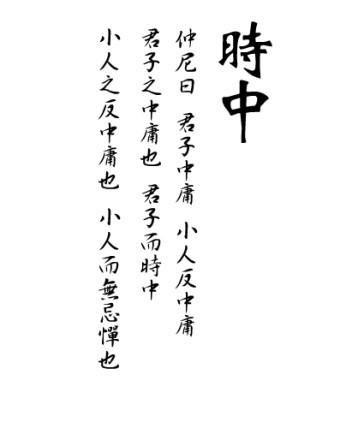 時中
仲尼曰 君子中庸 小人反中庸
君子之中庸也 君子而時中
小人之反中庸也 小人而無忌憚也